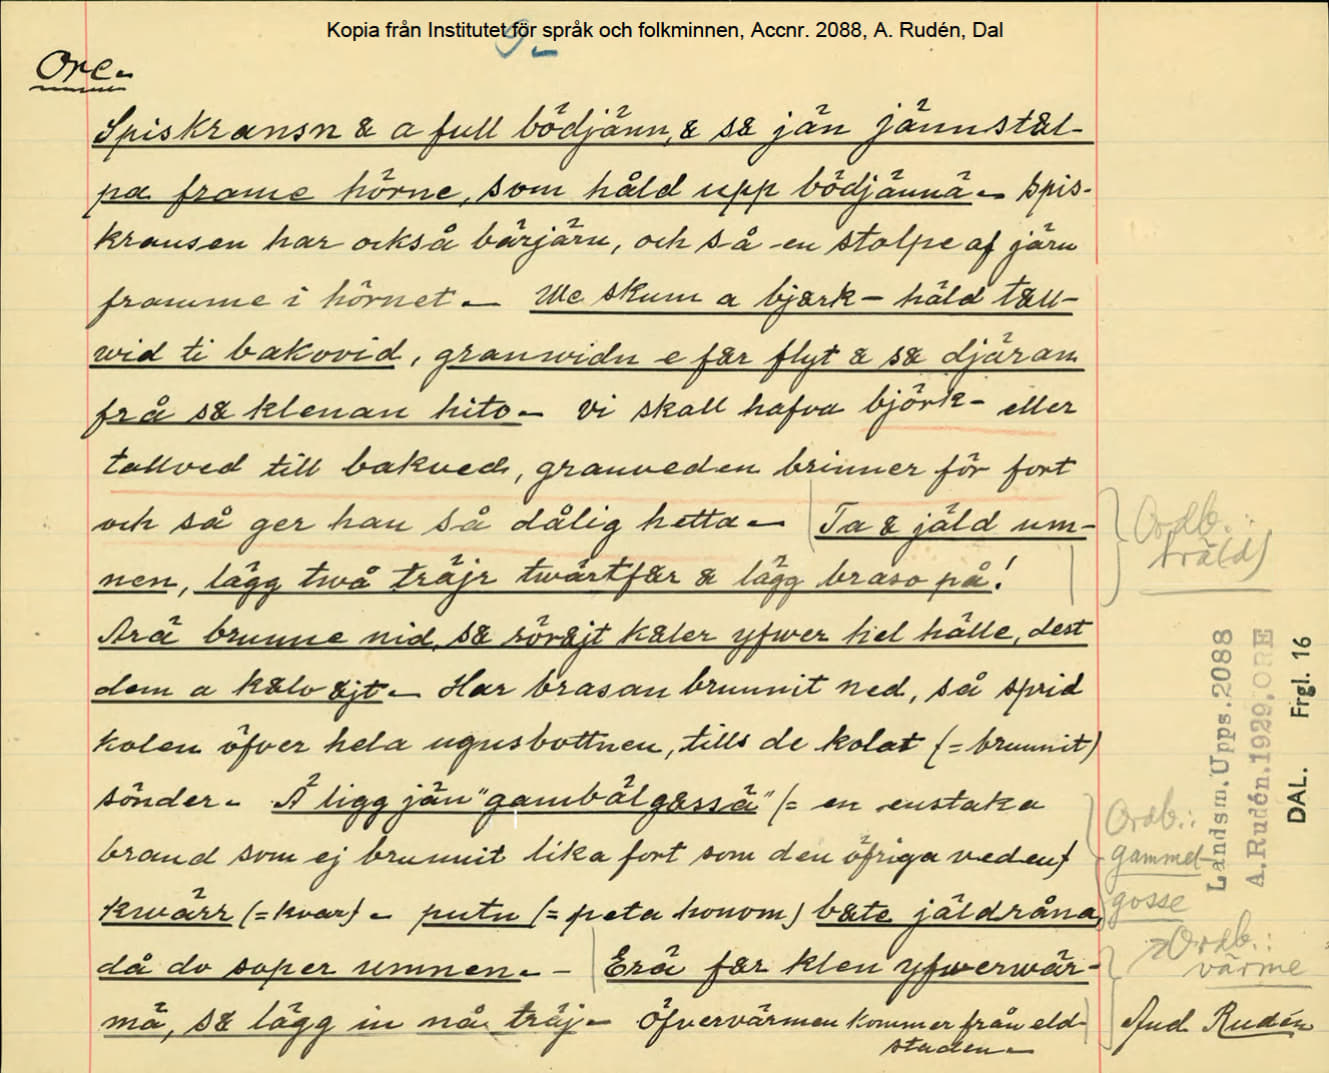 Kopia från Institutet för språk och folkminnen, Accnr. 2088, A. Rudén, Dal
9.-
Ore.-
Spiskransn & a full bödjänn, & s& jän jännst&l-
pa frame hörne, som håld upp bödjännä.- Spis-
kransen har också bärjärn, och så en stolpe af järn
framme i hörnet.- We skum a bj&rk- häld t&ll-
wid ti bakovid, granwidn e f&r flyt & s& djäran
frå s& klenan hito.- Vi skall hafva björk- eller
tallved till bakved, granveden brinner för fort
och så ger han så dålig hetta.- Ta & jäld um-
nen, lägg twå träjr twärtf&r & lägg braso på!
Arä brunne nid, s& rör&jt k&ler yfwer hel hälle, dest
dem a k&lv &jt.- Har brasan brunnit ned, så sprid
kolen öfver hela ugnsbottnen, tills de kolat (= brunnit)
sönder.- Ä ligg jän "gambälg&ssä" (= en enstaka
brand som ej brunnit lika fort som den öfriga veden)
kwärr (= kvar).- putn (= peta honom) b&te jäldråna,
då do soper umnen.- - Erä f&r klen yfwerwär-
mä, s& lägg in nå träj.- Öfvervärmen kommer från eld-
staden.-
Ordb.:
(räld)
Ordb.:
gammel-
gosse
Ordb.:
värme
And Rudén
Landsm. Upps. 2088
A. Rudén. 1929. ORE
DAL. Frgl. 16